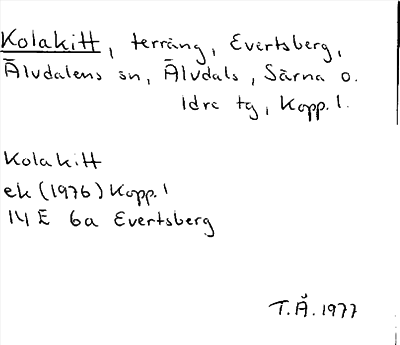 Kolakitt, terräng, Evertsberg,
Älvdalens sn, Älvdals, Särna o.
Idre tg, Kopp. l.
Kolakitt
ek (1976) Kopp. l
14 E 6a Evertsberg
T.Å. 1977